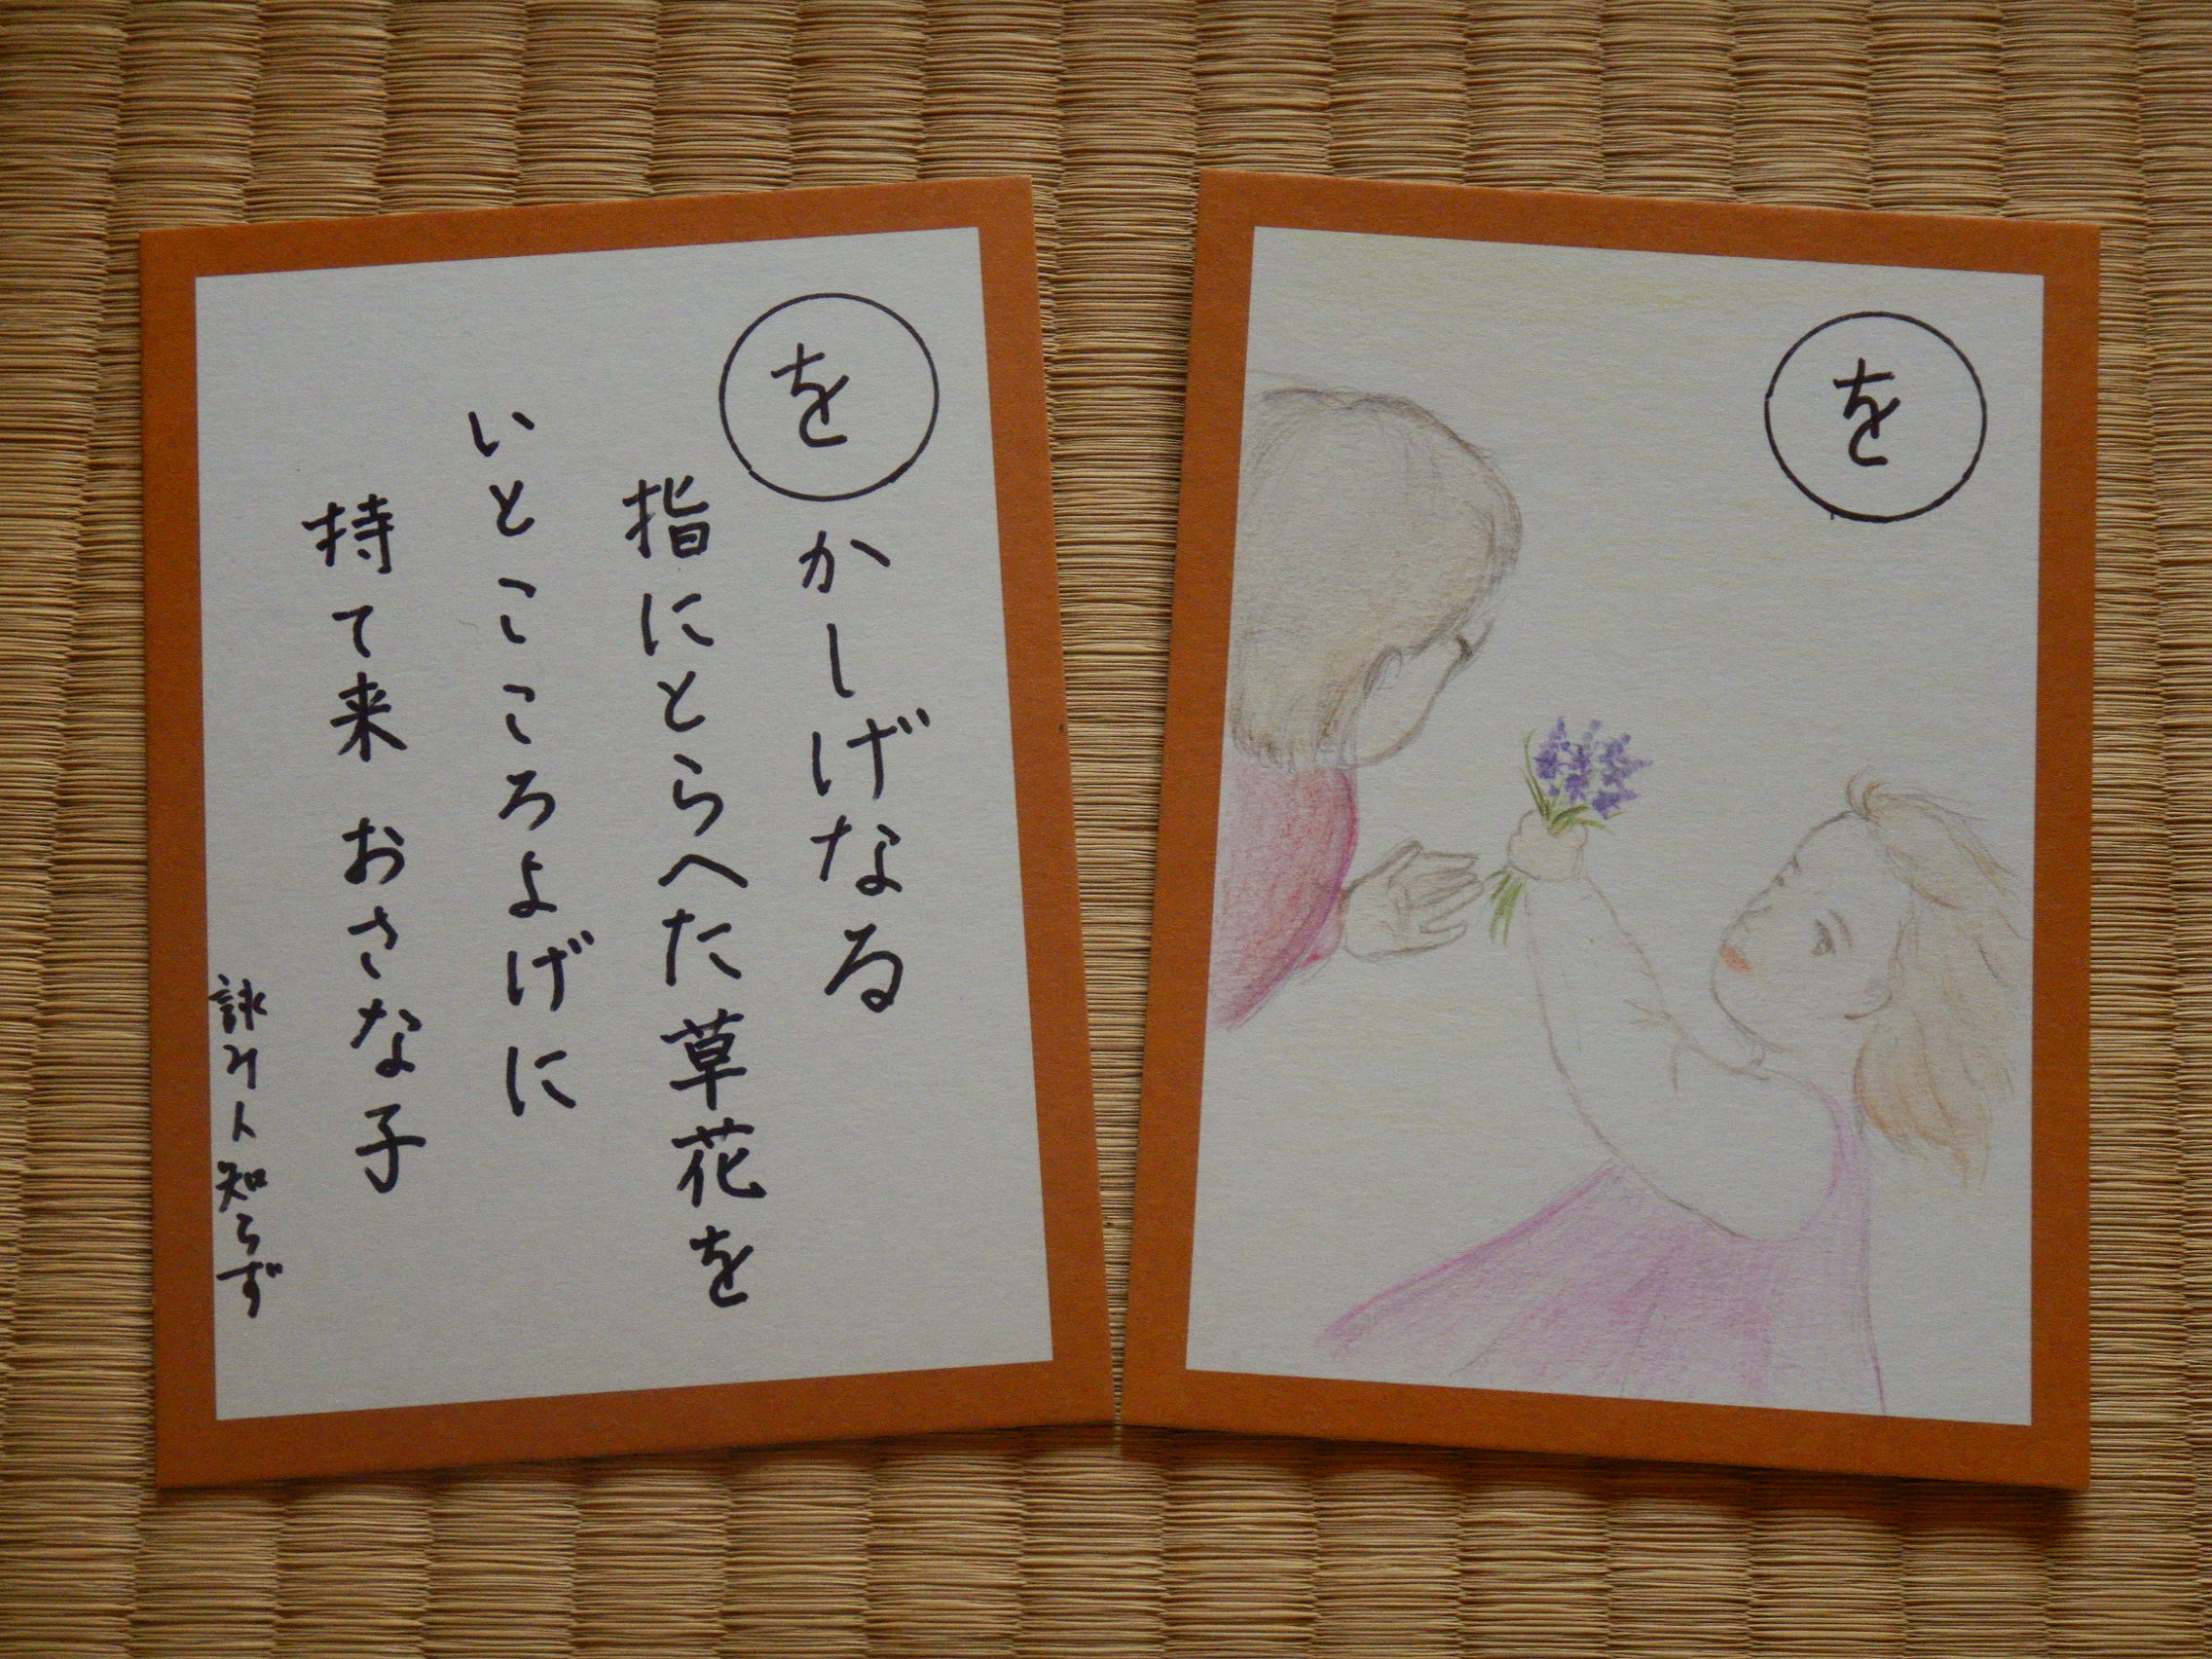 をかしげなる
指にとらへた草花を
いとこころよげに
持て来 おさな子
詠み人知らず
を